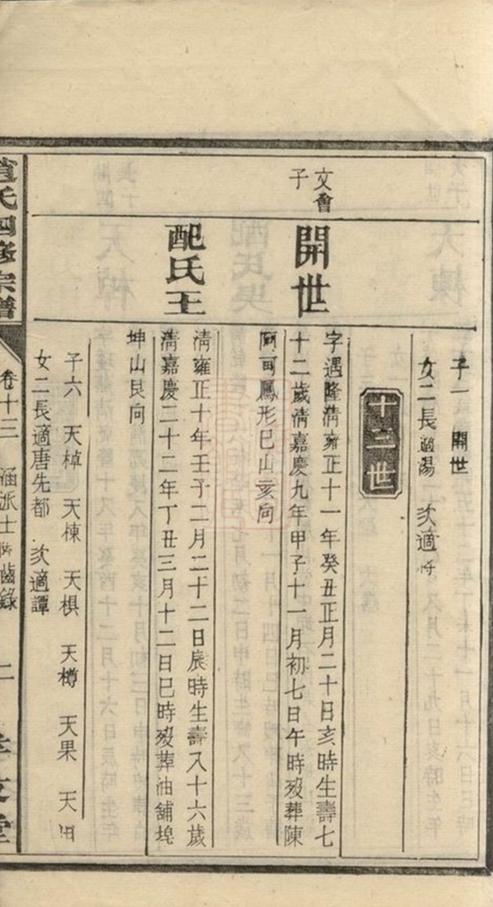 子一 開世
女二長適陽 次適
十三世
文會子
開世
字遇隆清雍正十一年癸丑正月二十日亥時生壽七
十二歲清嘉慶九年甲子十一月初七日午時殁葬陳
鳳形巳山亥向
配氏王
清雍正十年壬子二月二十二日辰時生壽八十六歲
清嘉慶二十二年丁丑三月十二日巳時殁葬油舖埦
坤山艮向
子六 天棹 天棟 天椇 天樽 天果 天
女二長適唐先都 次適譚
氏四修宗譜
卷十三
派士
齒錄
二
堂